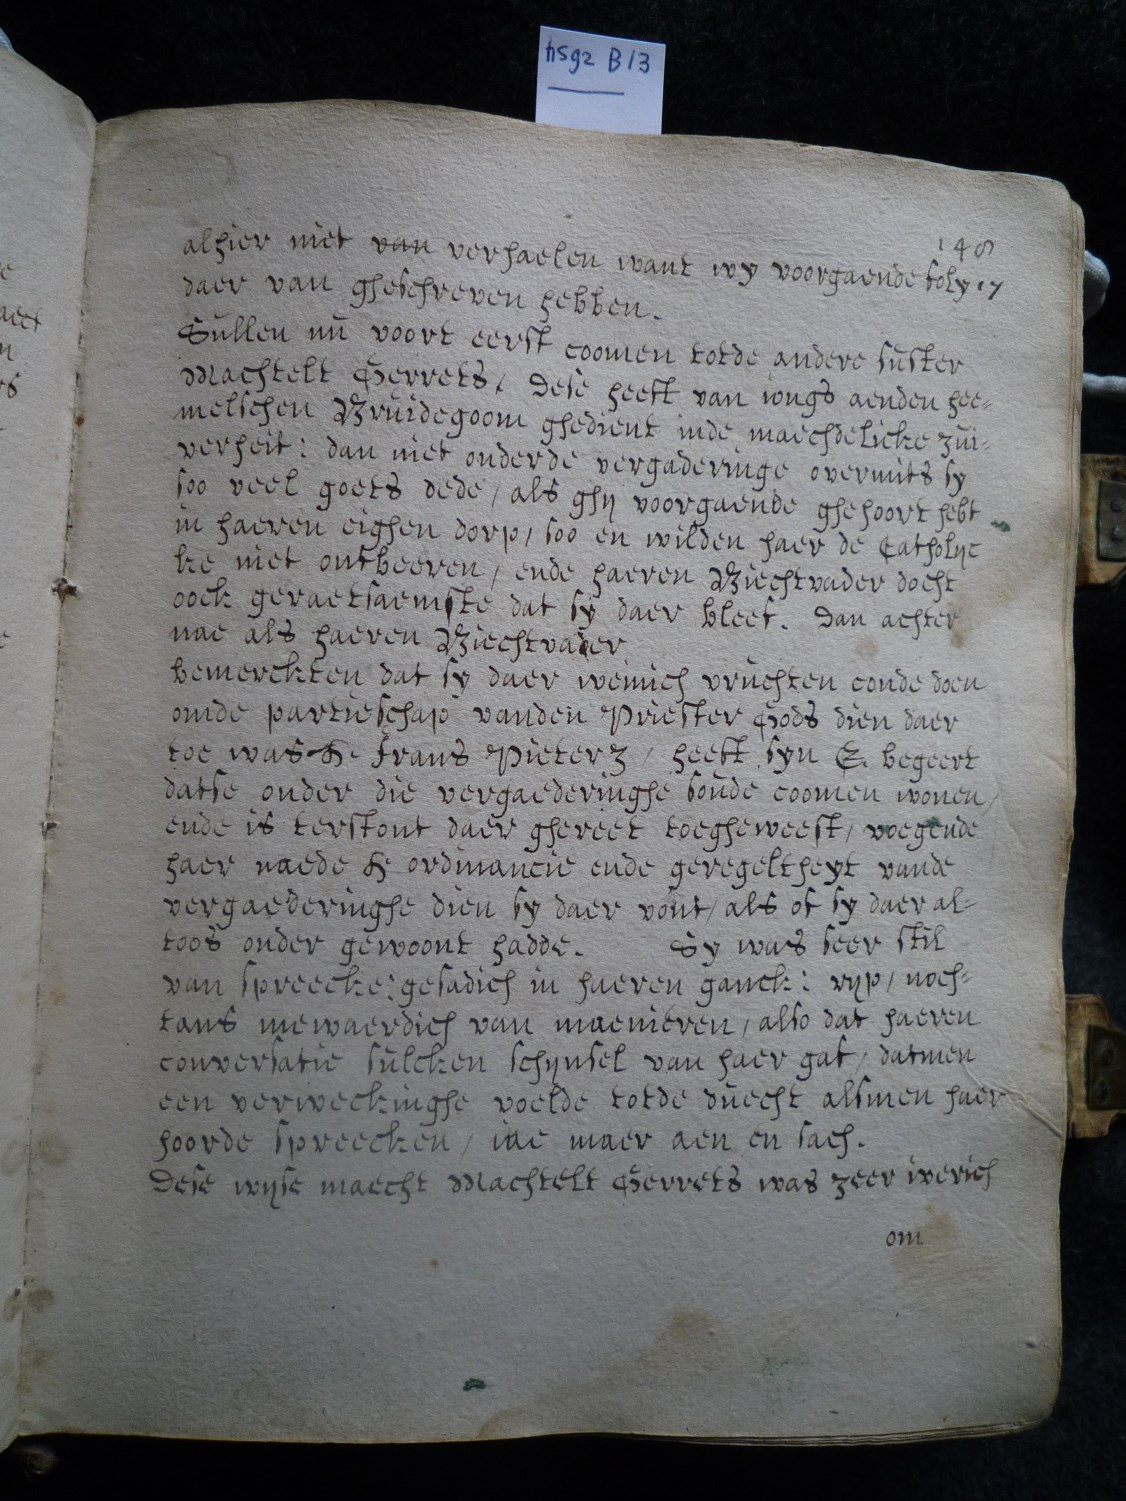 hs92 B13
148
alhier niet van verhaelen want wy voorgaende foly .7
daer van gheschreven hebben.
Sullen nu voort eerst coomen totde andere suster
Machtelt Gerrets, Dese heeft van iongs aenden hee-
melschen Bruidegoom ghedient inde maechdelicke zui-
verheit: dan niet onderde vergaderinge overmits sy
soo veel goets dede, als ghy voorgaende ghehoort hebt
in haeren eighen dorp, soo en wilden haer de Catholyc
ke niet ontbeeren, ende haeren Biechtvader docht
oock geraetsaemste dat sy daer bleef. Dan achter
nae als haeren Biechtvader
bemerckten dat sy daer weinich vruchten conde doen
omde partieschap vanden Priester Gods dien daer
toe was H. Frans Pieterz, heeft syn E. begeert
datse onder die vergaederinghe soude coomen wonen,
ende is terstont daer ghereet toegheweest, voegende
haer naede H ordinancie ende geregeltheyt vande
vergaederinghe dien sy daer vont, als of sy daer al-
toos onder gewoont hadde. Sy was seer stil
van spreecke: gesadich in haeren ganck: ryp, noch-
tans niewaerdich van maenieren, also dat haeren
conversatie sulcken schynsel van haer gaf, datmen
een verweckinghe voelde totde duecht alsmen haer
hoorde spreecken, iae maer aen en sach.
Dese wyse maecht Machtelt Gerrets was zeer iverich
om